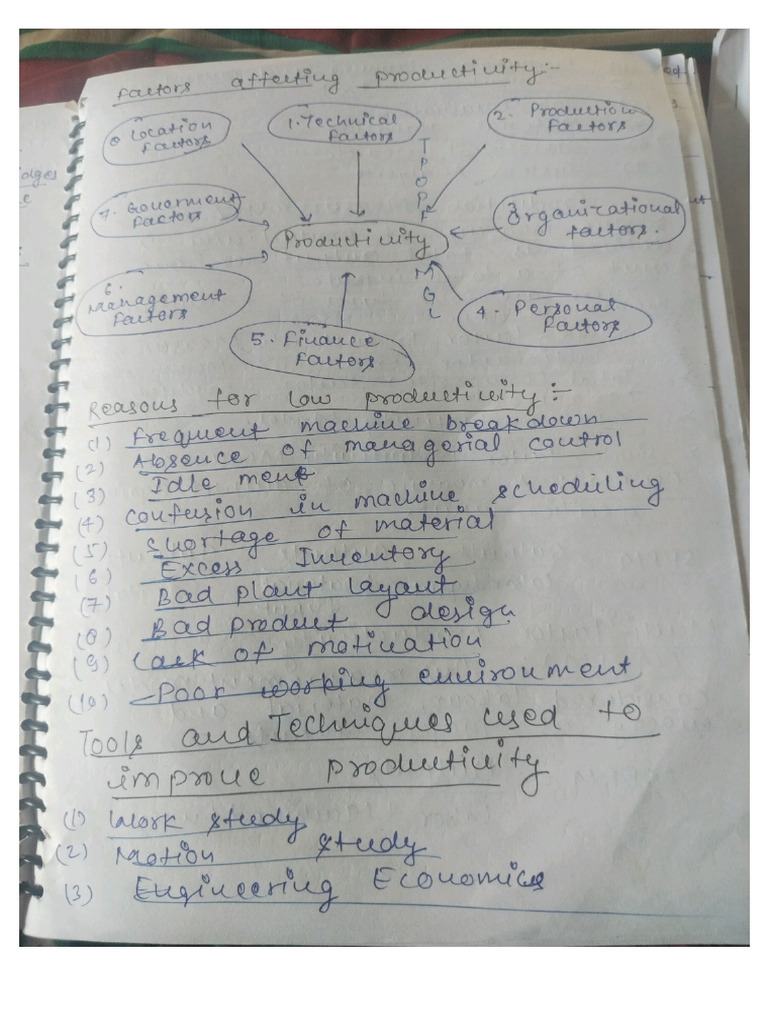 Factors affecting productivity:-
8 Location
Factors
1. Technical
Factors
2. Production
Factors
7. Government
Factors
3
Organizational
Factors.
Productivity
6.
Management
Factors
5. Finance
Factors
4. Personal
Factors
T
P
O
P
F
M
G
L
Reasons for low productivity:-
(1) Frequent machine breakdown
(2) Absence of managerial control
(3) Idle ment
(4) Confusion in machine scheduling
(5) Shortage of material
(6) Excess Inventory
(7) Bad plant layout
(8) Bad product design
(9) Lack of motivation
(10) Poor working environment
Tools and Techniques used to
improve productivity
(1) Work study
(2) Motion study
(3) Engineering Economics